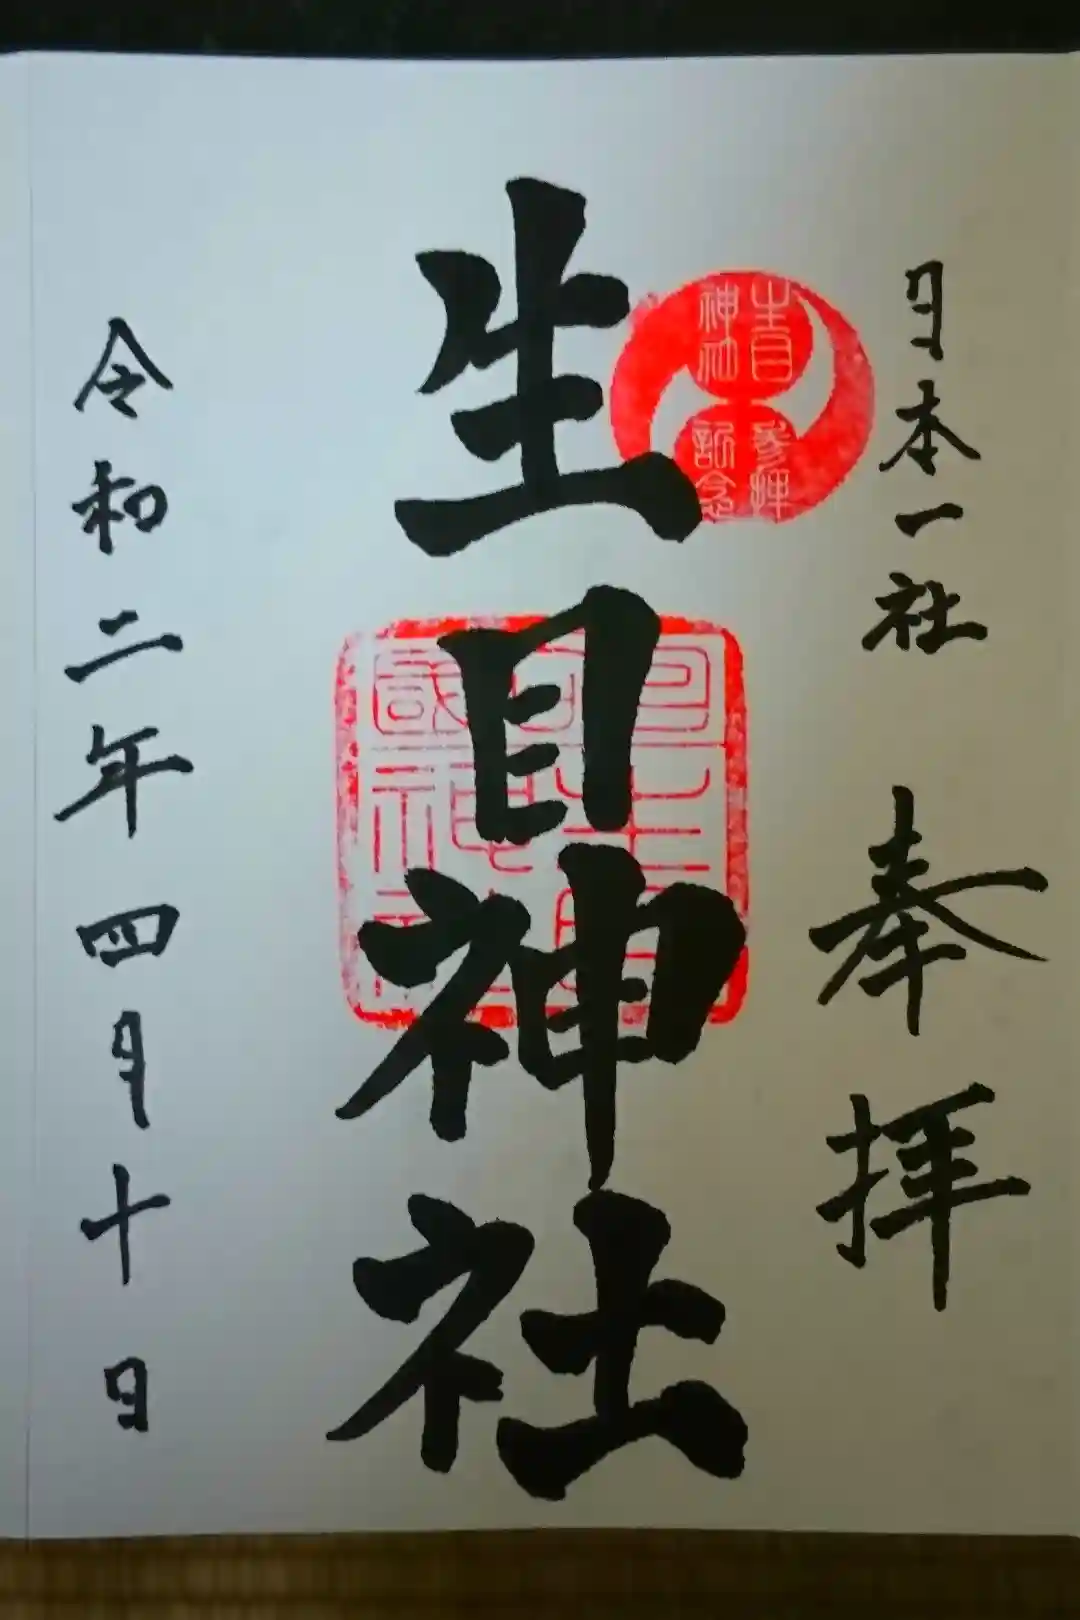 日本一社 奉拝
生目神社
令和二年四月十日
生目
神社
参拝
記念